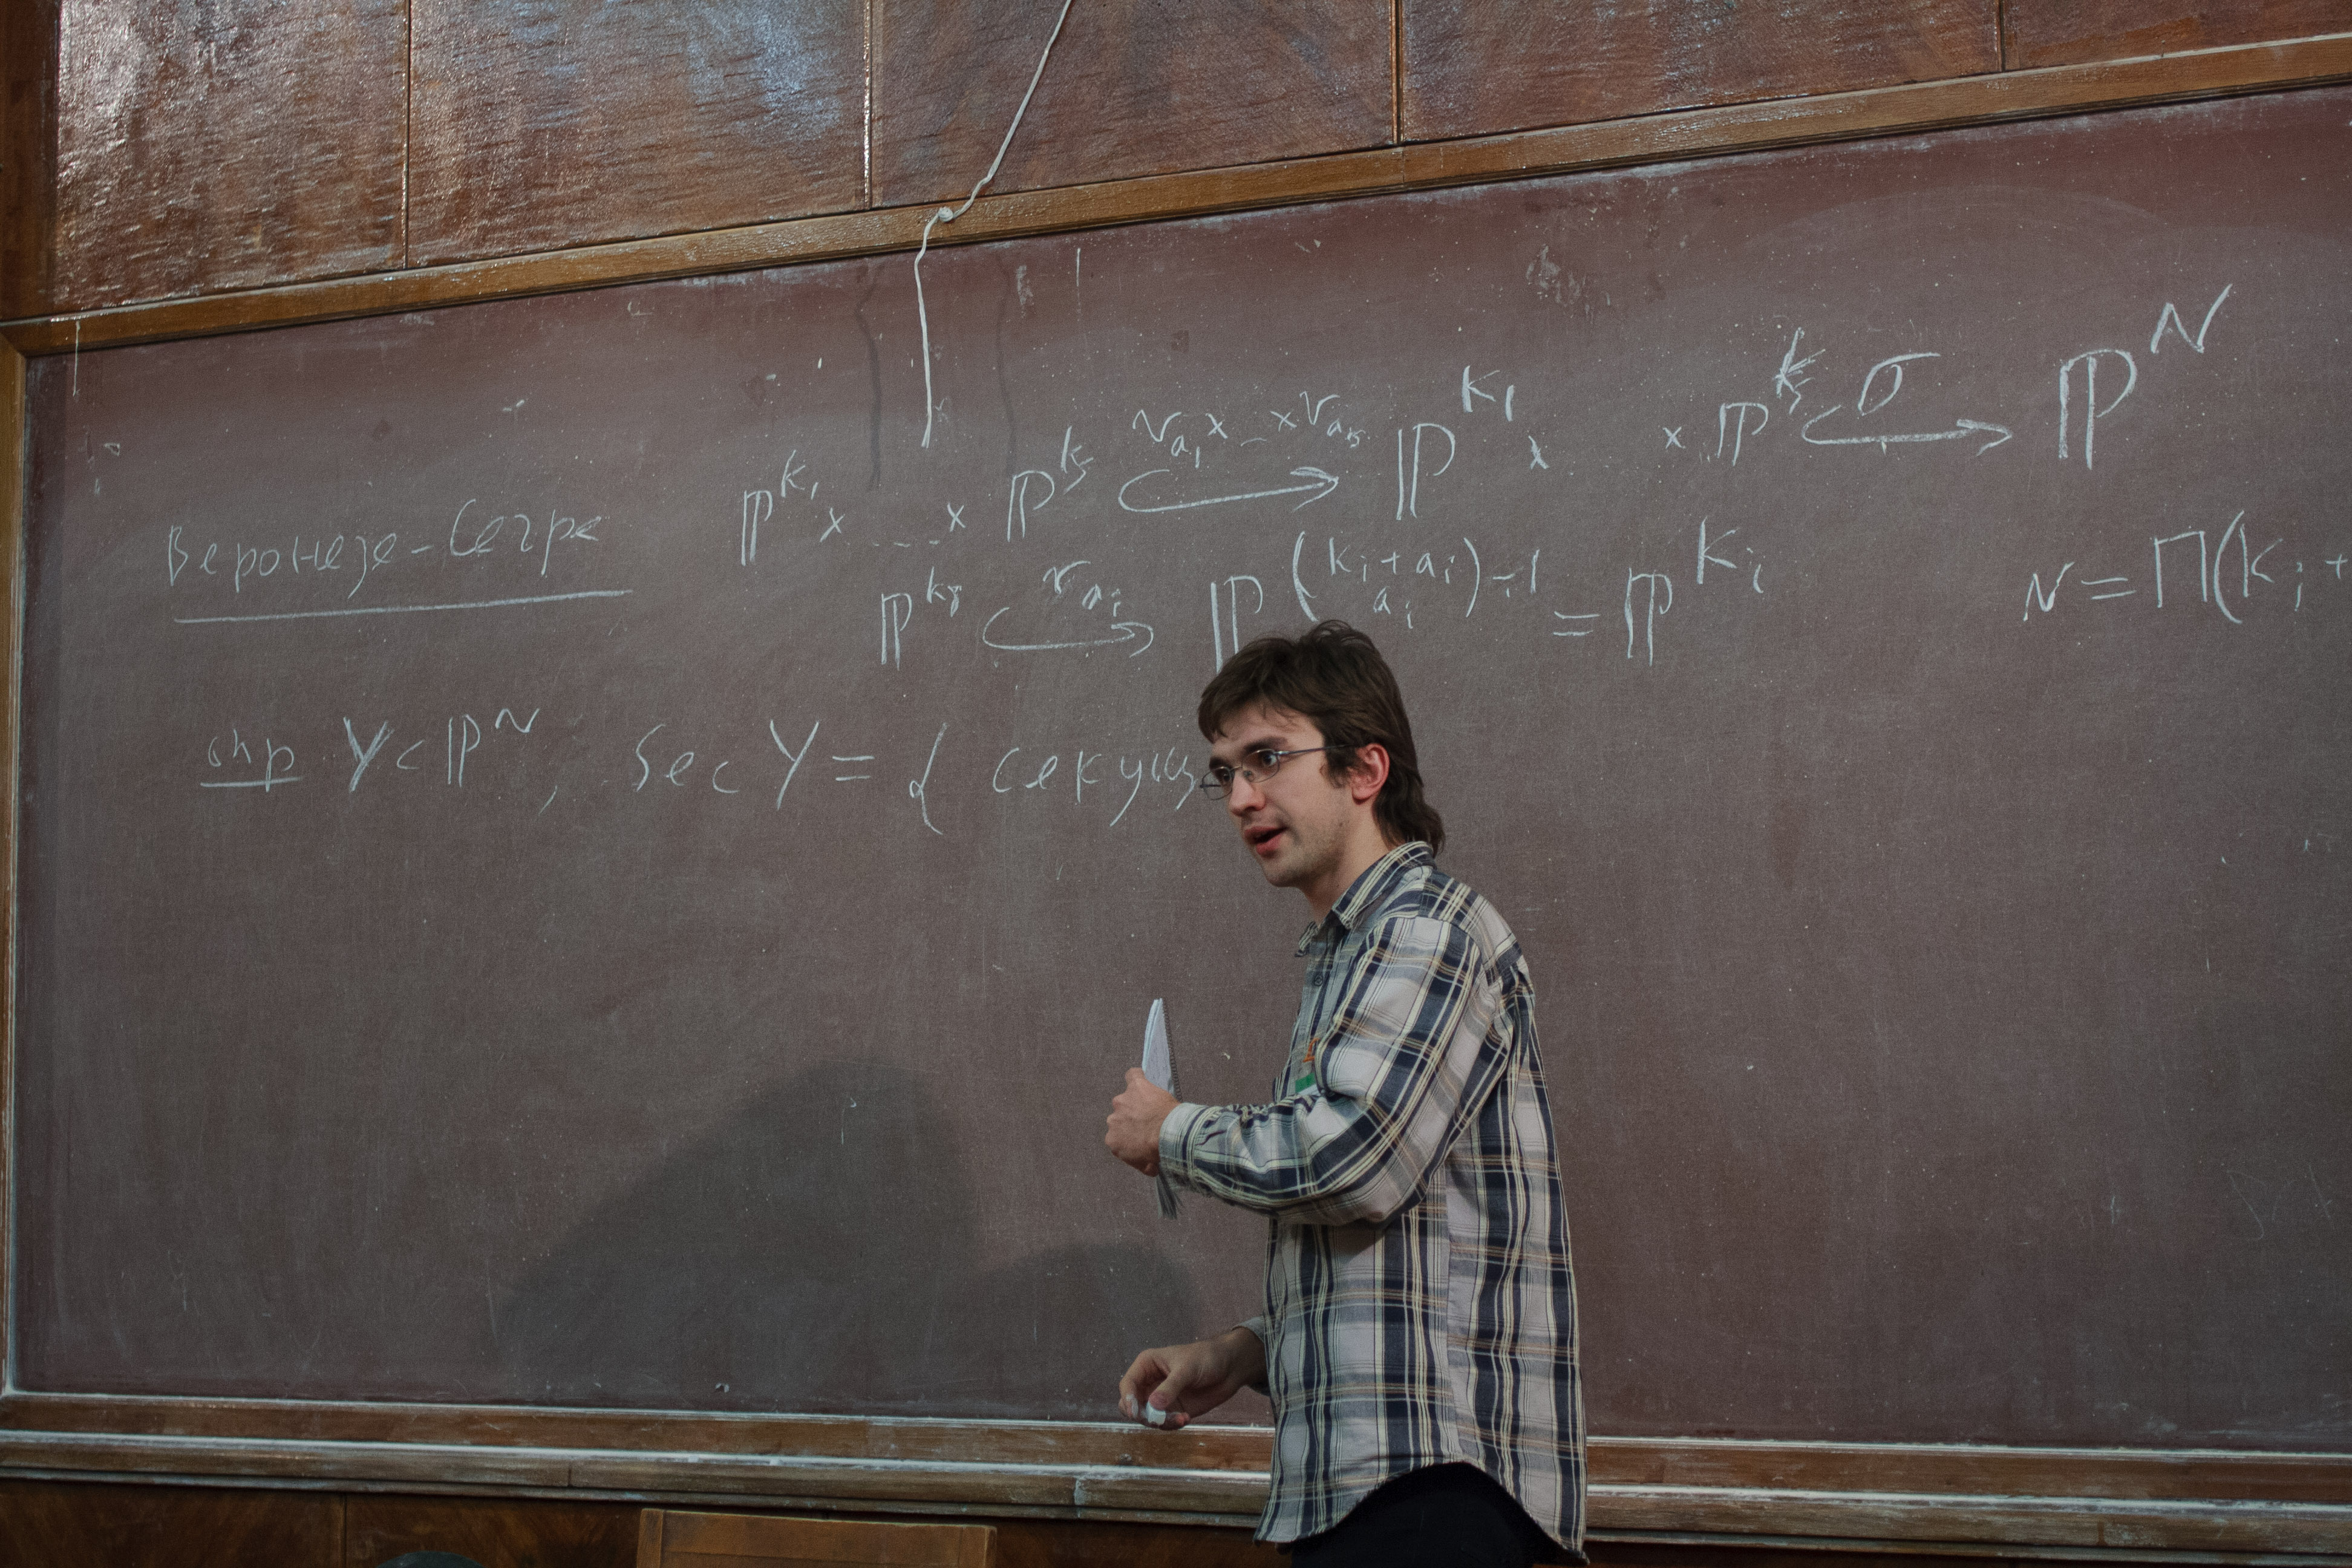 Веронезе-Сегре P^{k_1} × ... × P^{k_s} ↪ v_{a_1} × ... × v_{a_s} P^{K_1} × × P^{K_s} ↪ σ P^N
P^{k_i} ↪ v_{a_i} P^{\binom{k_i + a_i}{a_i} - 1} = P^{K_i} N = Π(K_i +
опр Y ⊂ P^N, Sec Y = { секущ